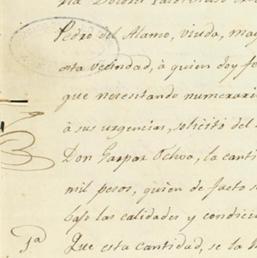 Dolores
Pedro del Alamo, viuda, may
esta vecindad, à quien doy fe
que necesitando numerari
à sus urgencias, solicitó del
Don Gaspar Ochoa, la canti
mil pesos, quien de facto s
bajo las calidades y condici
1a Que esta cantidad, se la h